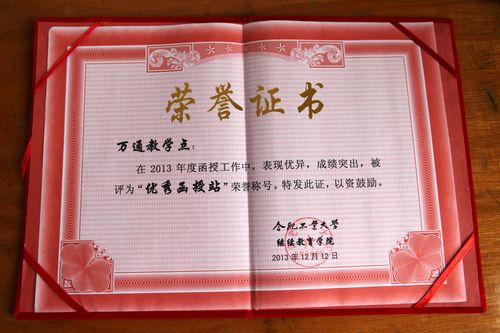 荣誉证书
万通教学点：
在 2013 年度函授工作中，表现优异，成绩突出，被
评为“优秀函授站”荣誉称号。特发此证，以资鼓励。
合肥工业大学
继续教育学院
2013 年 12 月 12 日